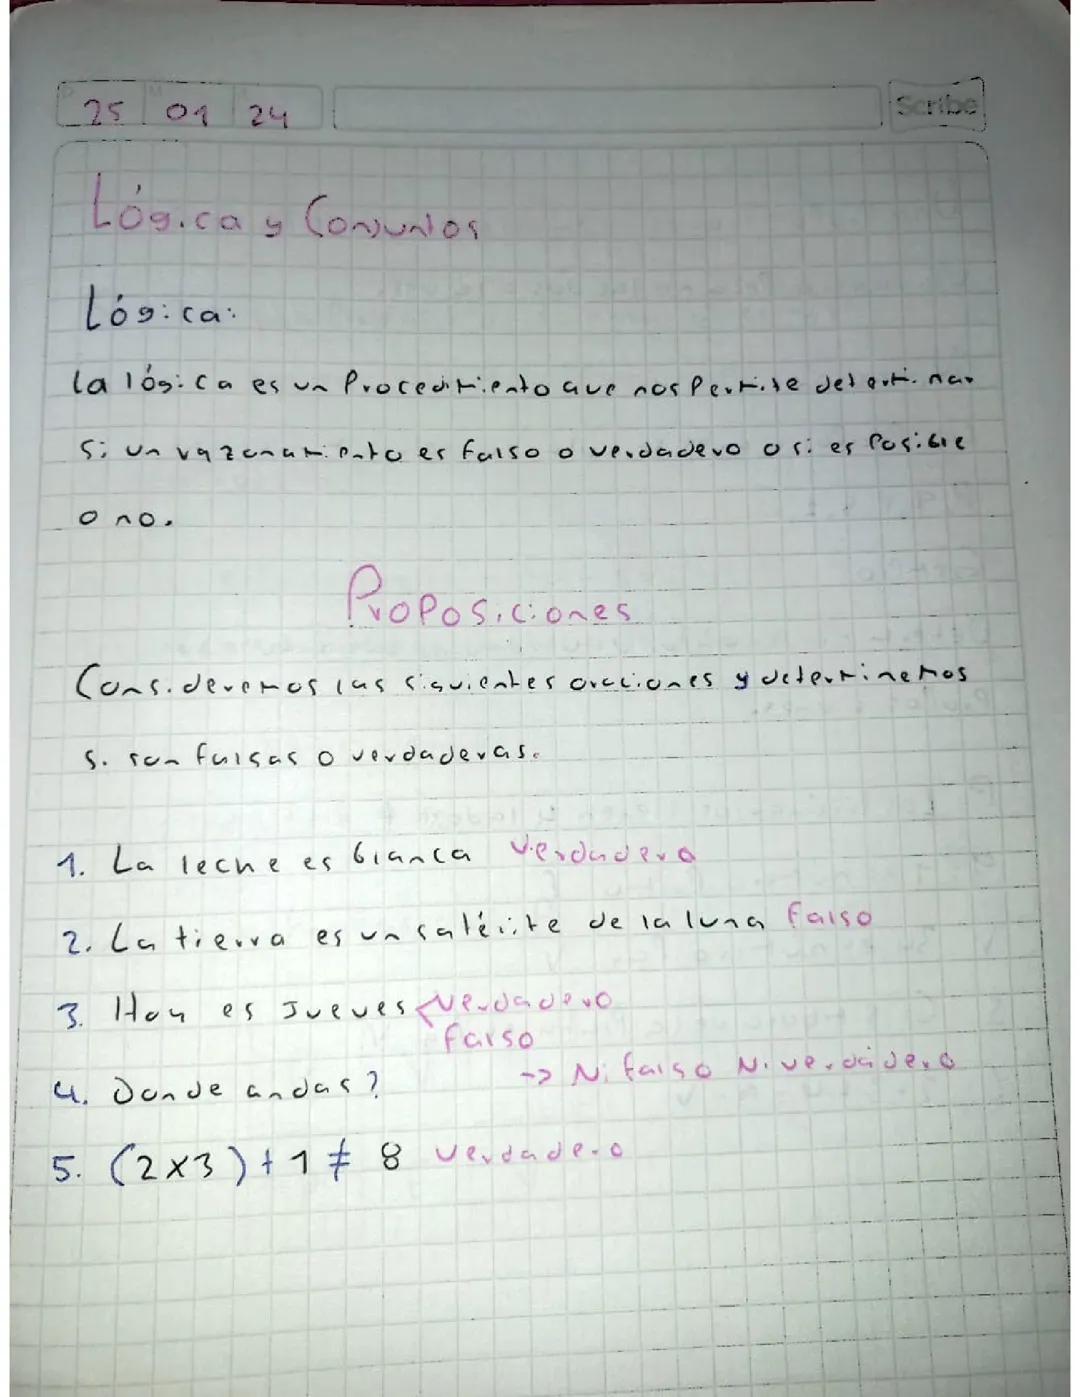 25 01 24
Scribe
Lógica y Conjuntos
Lógica:
la lógica es un Procedimiento que nos Permite determinar
Si un razonamiento es falso o verdadero o si es Posible
o no.
Proposiciones
Consideremos las siguientes oraciones y determinemos
si son falsas o verdaderas.
1. La leche es blanca Verdadero
2. La tierra es un satélite de la luna falso
3. Hoy es Jueves < Verdadero
falso
4. Donde andas? -> Ni falso Ni verdadero
5. (2x3)+1≠8 Verdadero